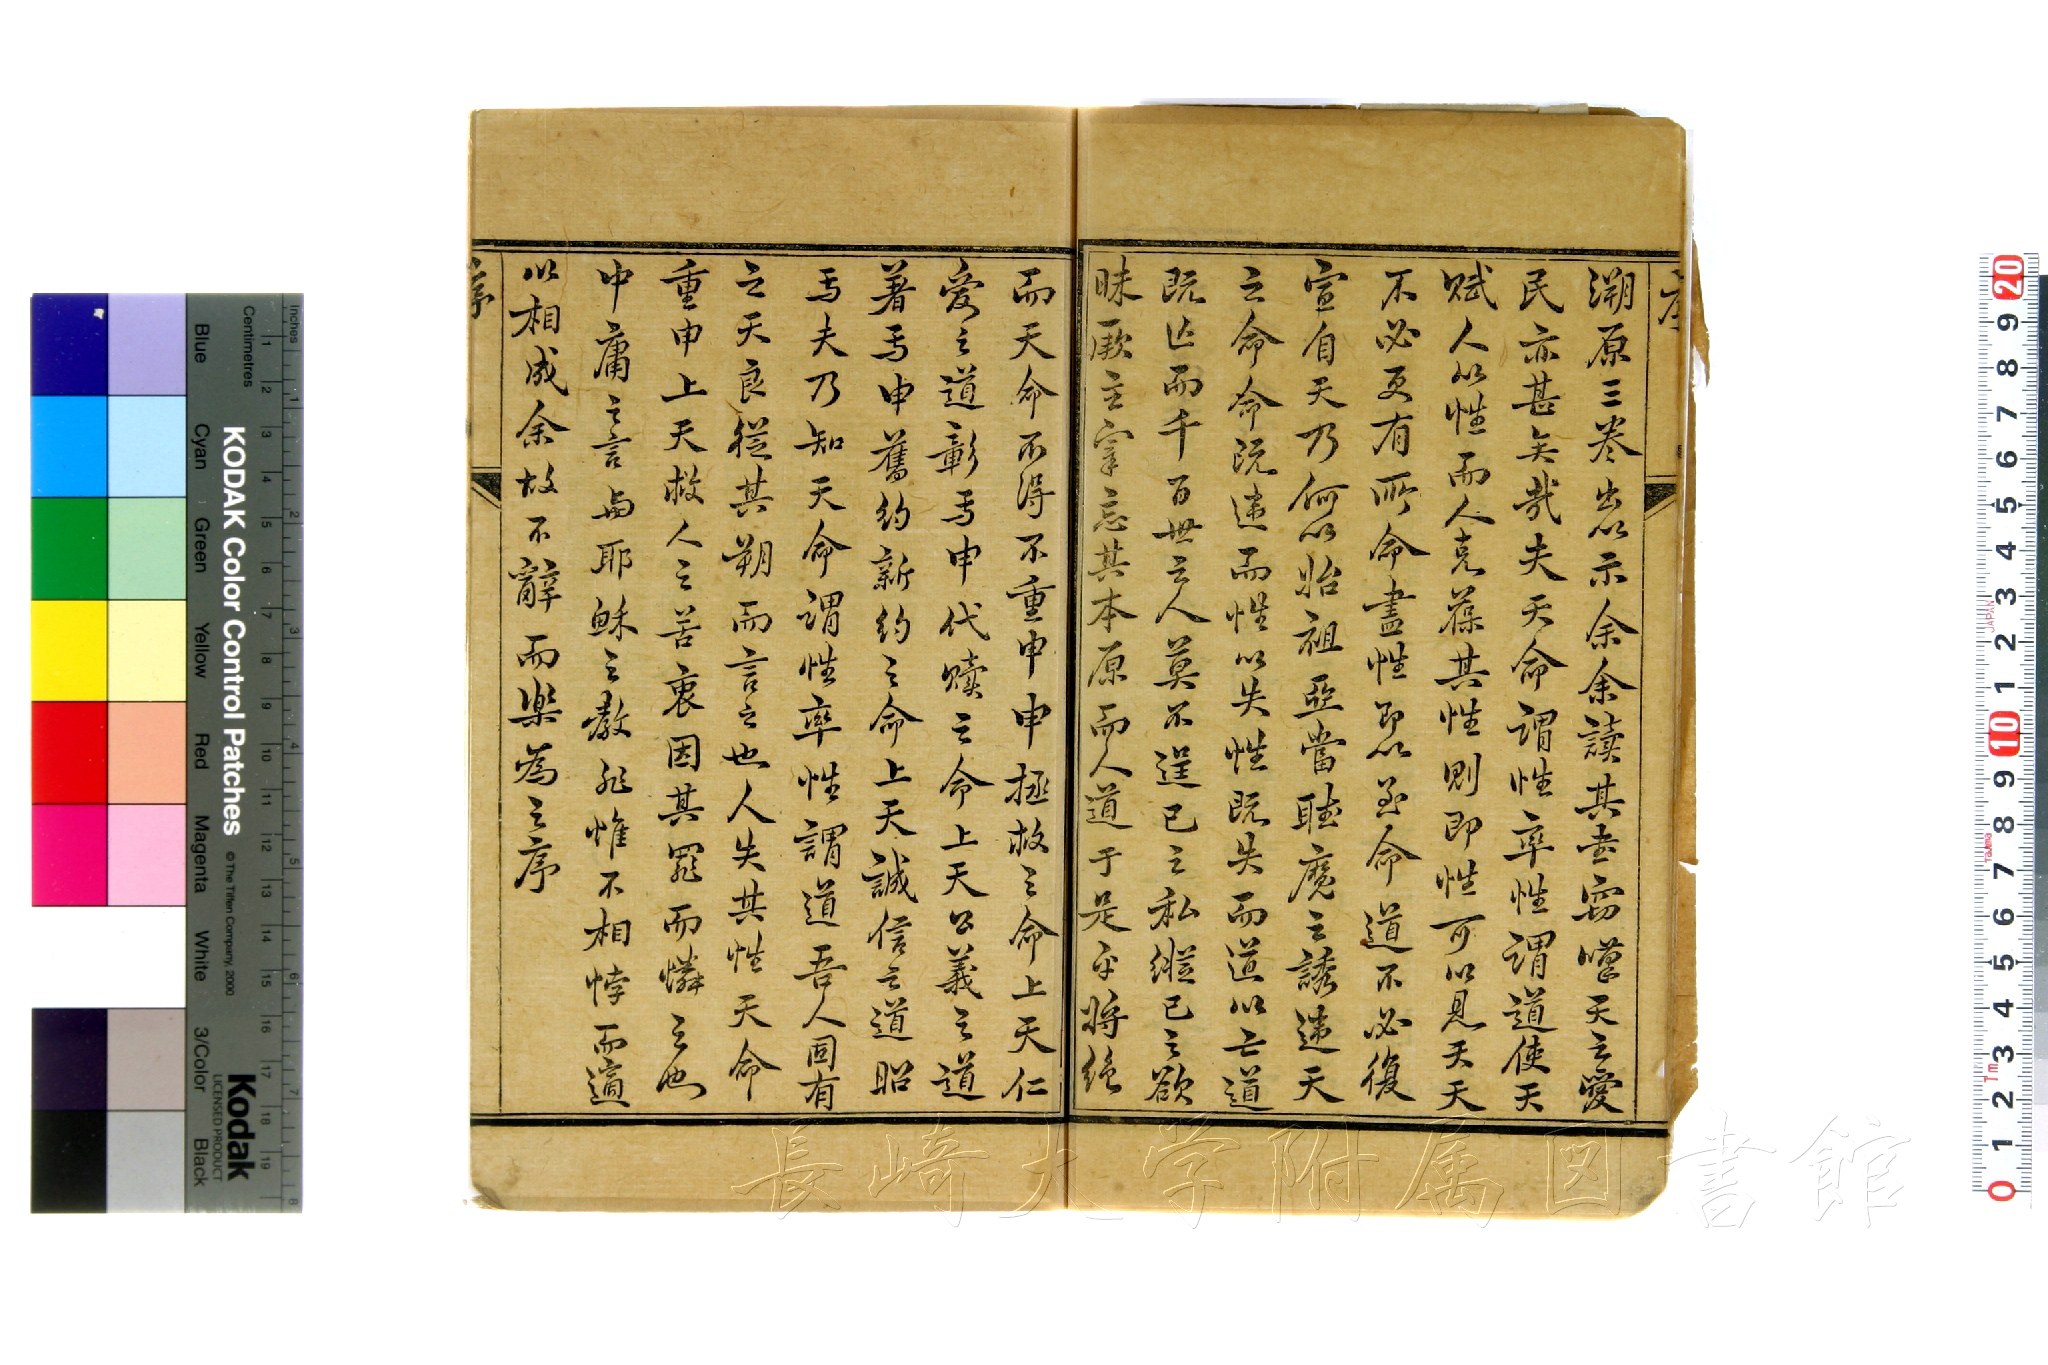 溯原三卷出以示余余讀其書竊嘆天之愛
民亦甚矣哉夫天命謂性率性謂道使天
賦人以性而人克葆其性則即性可以見天天
不必更有所命盡性即以至命道不必復
宣自天乃何以始祖亞當聽魔之誘違天
之命命既違而性以失性既失而道以亡道
既亡而千百世之人莫不逞己之私縱己之欲
昧厥主宰忘其本原而人道于是乎將絕
而天命不得不重申申拯救之命上天仁
愛之道彰焉申代贖之命上天公義之道
著焉申舊約新約之命上天誠信之道昭
焉夫乃知天命謂性率性謂道吾人固有
之天良從其朔而言之也人失其性天命
重申上天救人之苦衷因其罪而憐之也
中庸之言與耶穌之教非惟不相悖而適
以相成余故不辭而樂為之序
序
長崎大学附属図書館
KODAK Color Control Patches
© The Tiffen Company, 2000
Kodak
LICENSED PRODUCT
Inches
Centimetres
Blue
Cyan
Green
Yellow
Red
Magenta
White
3/Color
Black
JAPAN
Tajima